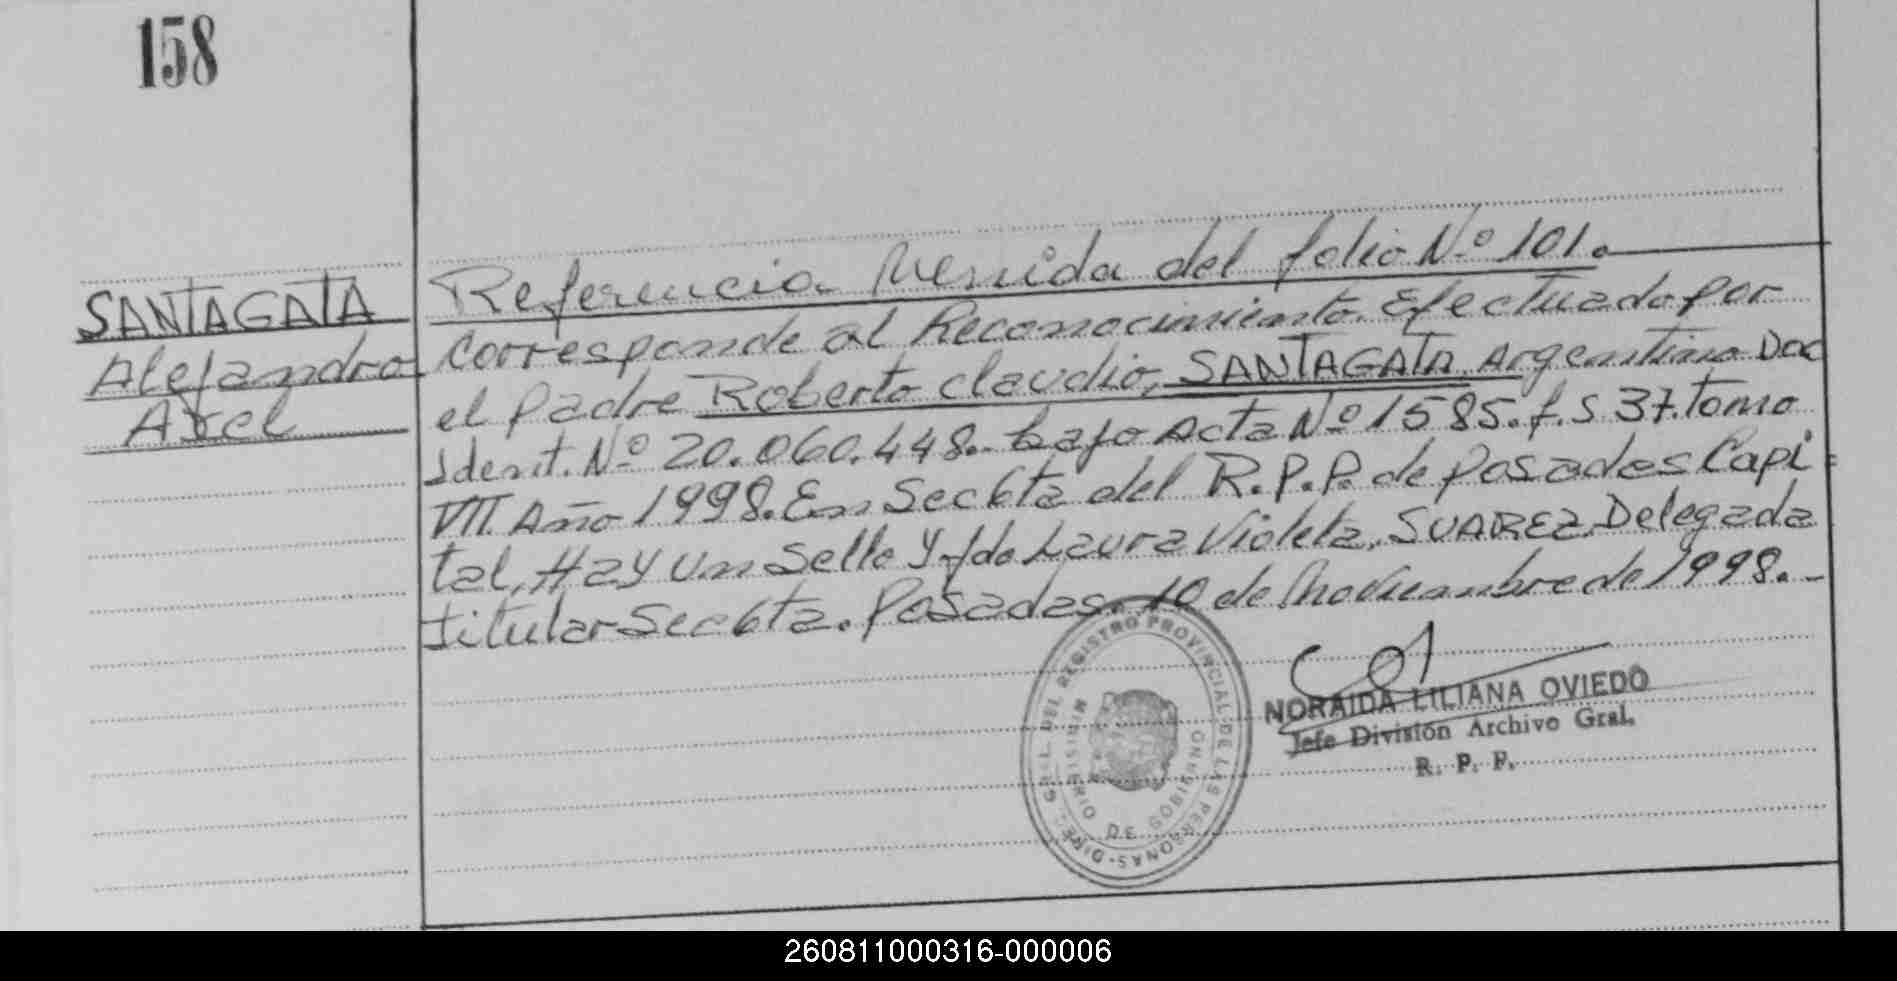 158
SANTAGATA
Alejandro
Axel
Referencia Venida del folio Nº 101.
Corresponde al Reconocimiento. Efectuado por
el Padre Roberto Claudio, SANTAGATA, Argentino Doc
Ident. Nº 20.060.448.- bajo Acta Nº 1585. f.s 37. Tomo
VII. Año 1998. En Sec 6ta del R.P.P. de Posadas Capi
tal, Hay Un Sello Y fdo Laura Violeta, SUAREZ, Delegada
titular Sec 6ta. Posadas. 10 de Noviembre de 1998.-
DIRE. GRAL. DEL REGISTRO PROVINCIAL DE LAS PERSONAS
MINISTERIO DE GOBIERNO
NORAIDA LILIANA OVIEDO
Jefe División Archivo Gral.
R. P. P.
260811000316-000006